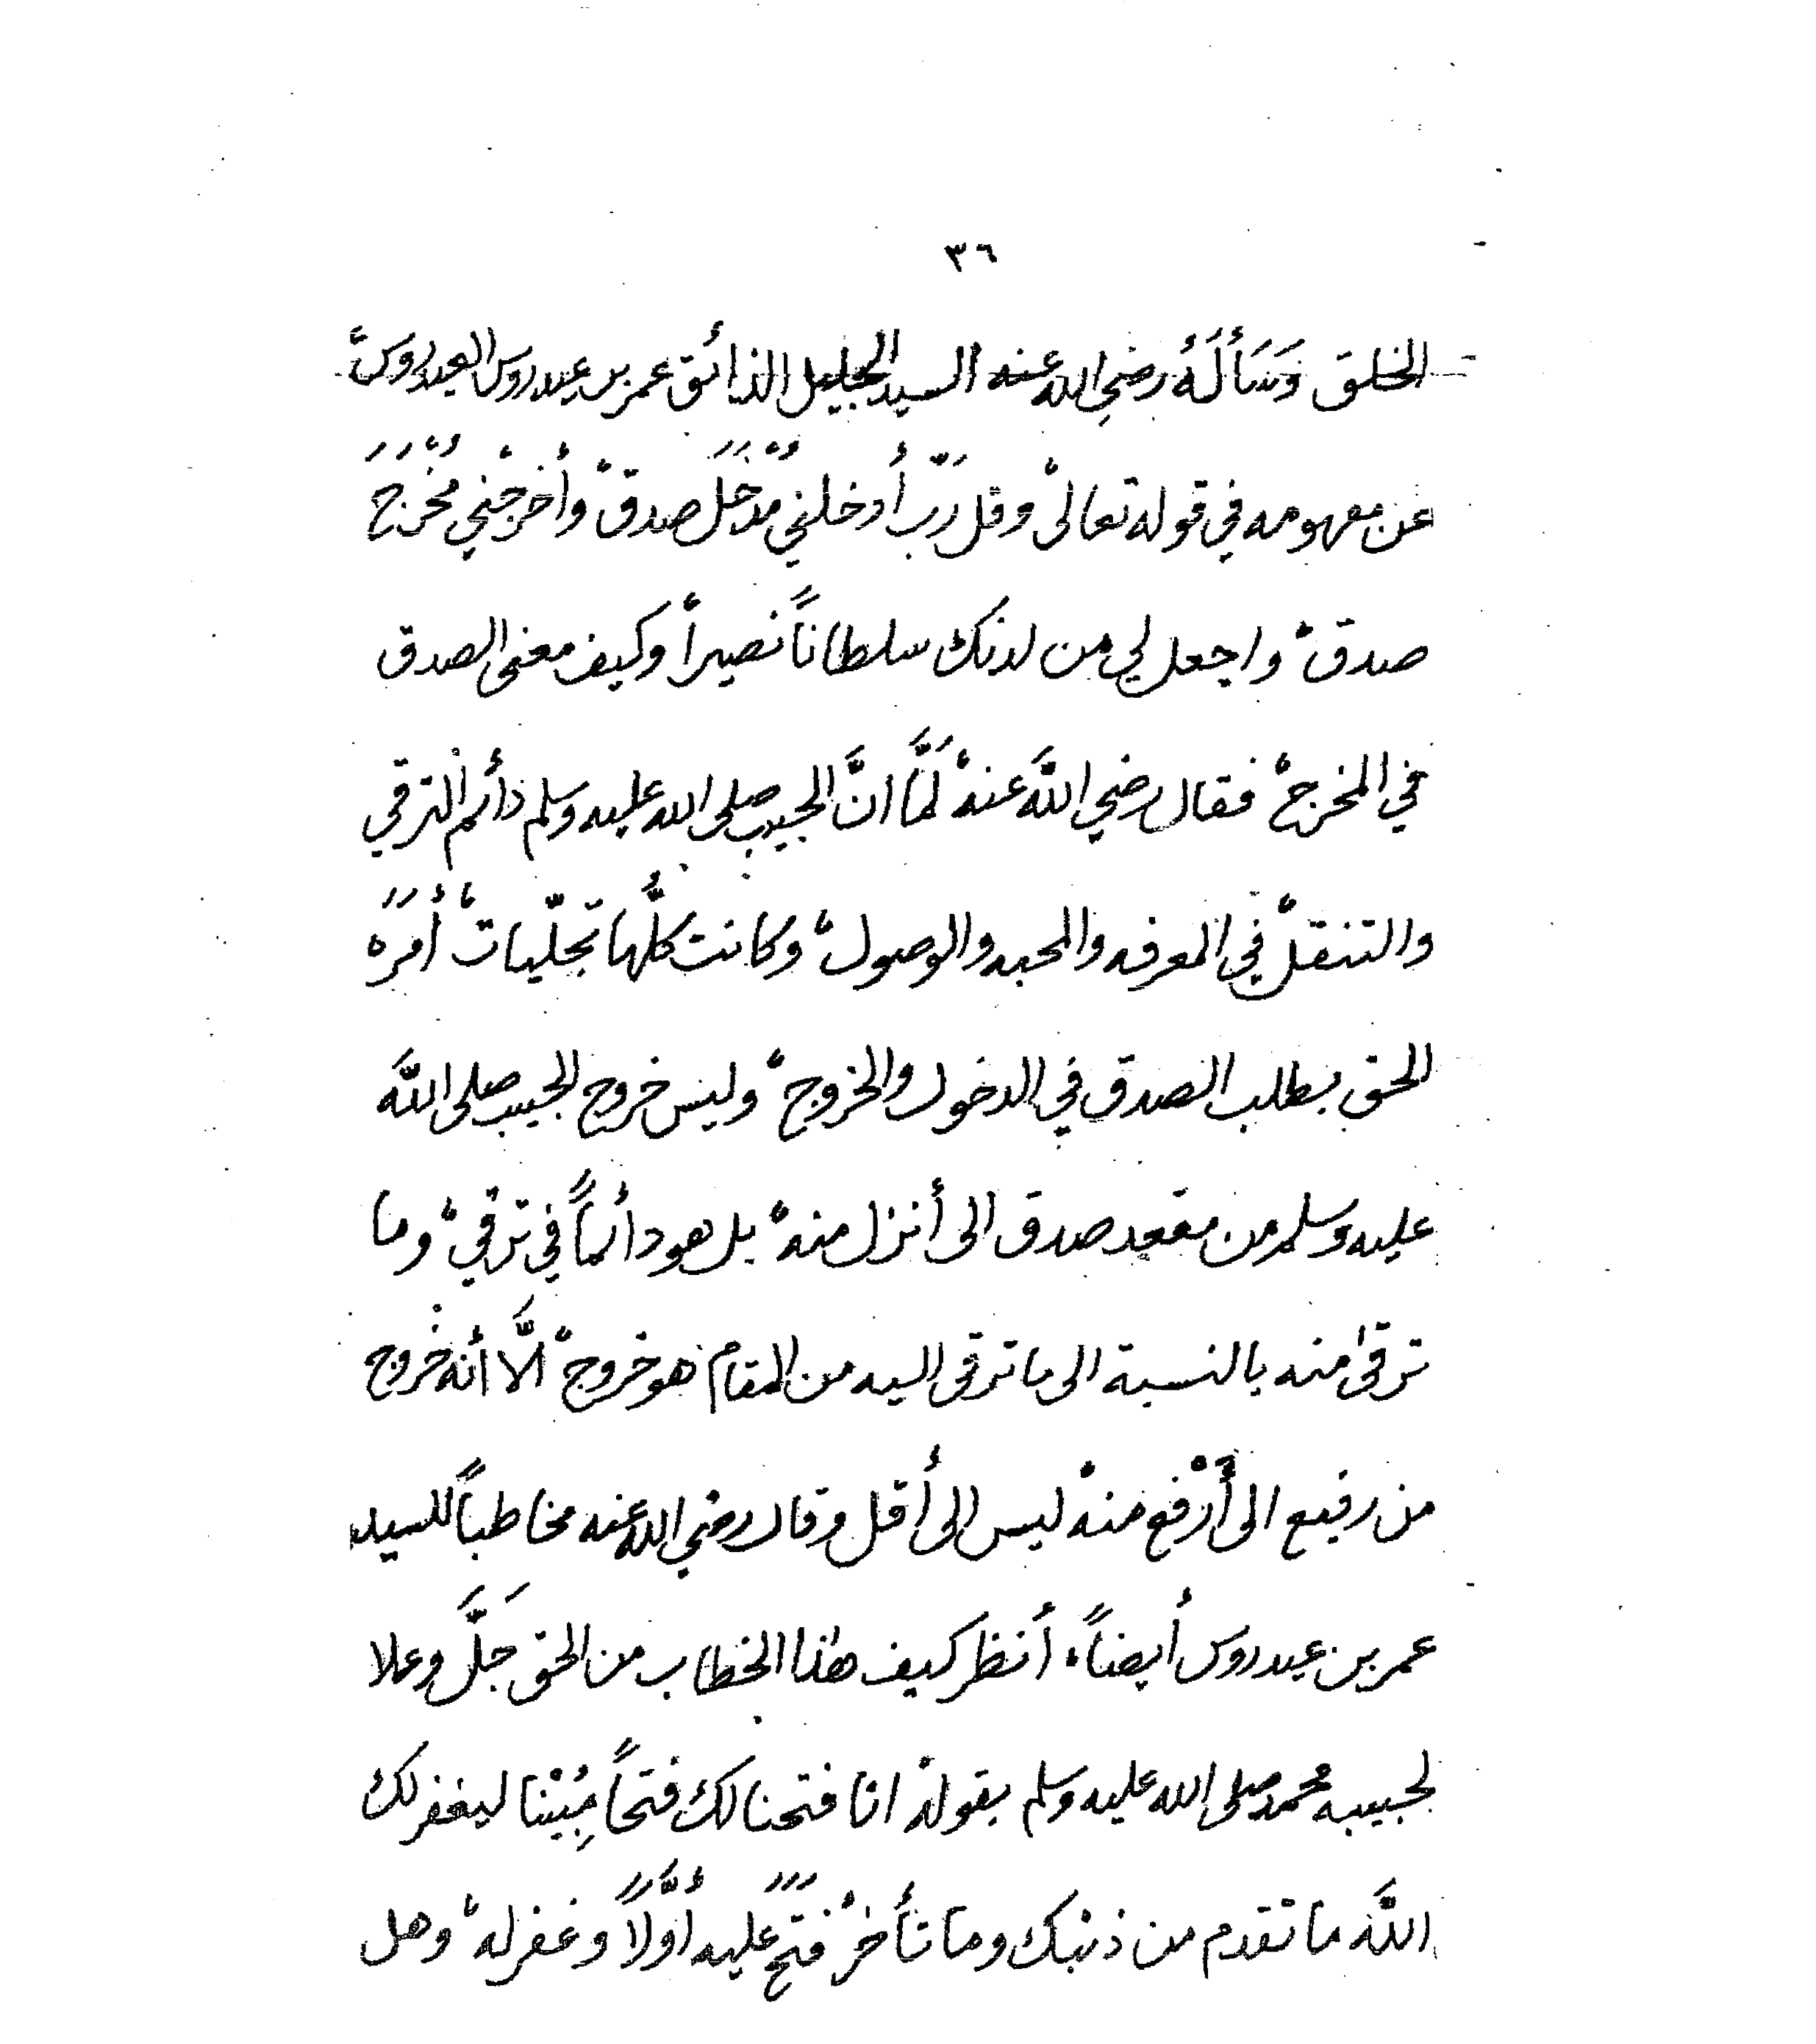 ٣٦
الخلق وَسَألَهُ رضي الله عنه السيد الجليل الذائق عمر بن عيدروس العيدروس
عن مفهومه في قوله تعالى وقل رَبّ أدخلني مُدْخَلَ صدق وأخرجْني مُخْرَجَ
صدق واجعل لي من لدنك سلطاناً نصيراً وكيف معنى الصدق
في المخرج فقال رضي اللَّه عنه لَمَّا انَّ الحبيب صلى الله عليه وسلم دائم الترقي
والتنقل في المعرفه والمحبه والوصول وكانت كلُّها تجلّيات أمَرَه
الحق بطلب الصدق في الدخول والخروج وليس خروج الحبيب صلى اللَّه
عليه وسلم من مقعد صدق الى أنزل منه بل هو دائماً في ترقي وما
ترقى منه بالنسبة الى ما ترقى اليه من المقام هو خروج الَّا أنه خُروج
من رفيع الى أرْفع منه ليس الى أقل وقال رضي الله عنه مخاطباً للسيد
عمر بن عيدروس أيضاً. أنظر كيف هذا الخطاب من الحق جَلَّ وعلا
لحبيبه محمد صلى الله عليه وسلم بقوله انا فتحنا لك فتحاً مُبِيْنا ليغفر لك
اللَّه ما تقدم من ذنبك وما تأخر فتحَ عليه أوَّلاً وغفر له وهل